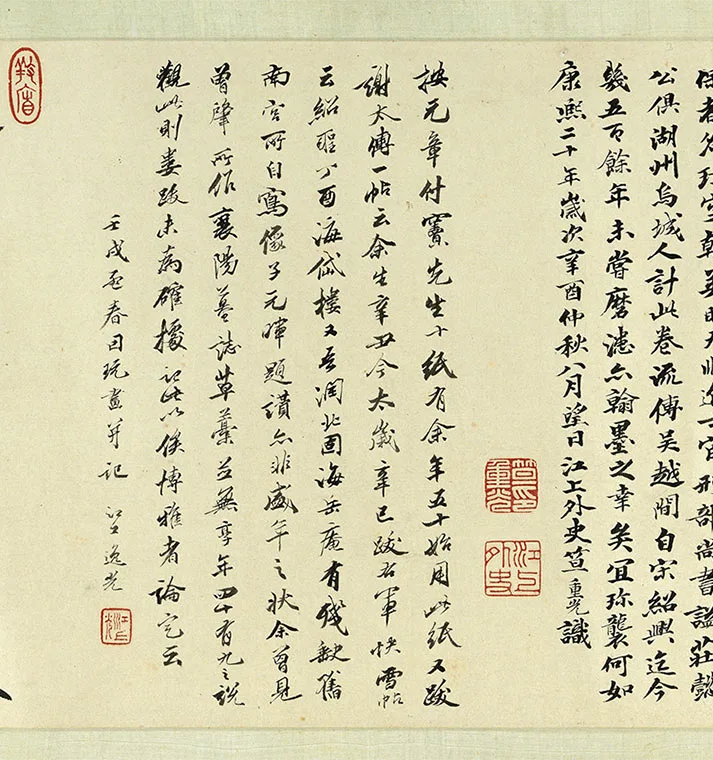 官刑部尚書謚莊懿
公俱湖州烏城人計此卷流傳吳越間自宋紹興迄今
幾五百餘年未嘗磨滅亦翰墨之幸矣宜珍襲何如
康熙二十年歲次辛酉仲秋八月望日江上外史笪重光識
笪印重光
江上外史
按元章付竇先生十紙有余年五十始用此紙又跋
謝太傅一帖云余生辛丑今太歲辛巳跋右軍快雪帖
云紹聖丁酉海岱樓又吾潤北固海岳庵有殘缺舊
南宮所自寫像子元暉題讚亦非盛年之狀余曾見
曾肇所作襄陽墓誌草藁並無享年四十有九之說
觀此則婁跋未為確據記此以俟博雅者論定云
壬戌春日玩畫并記 江上逸光